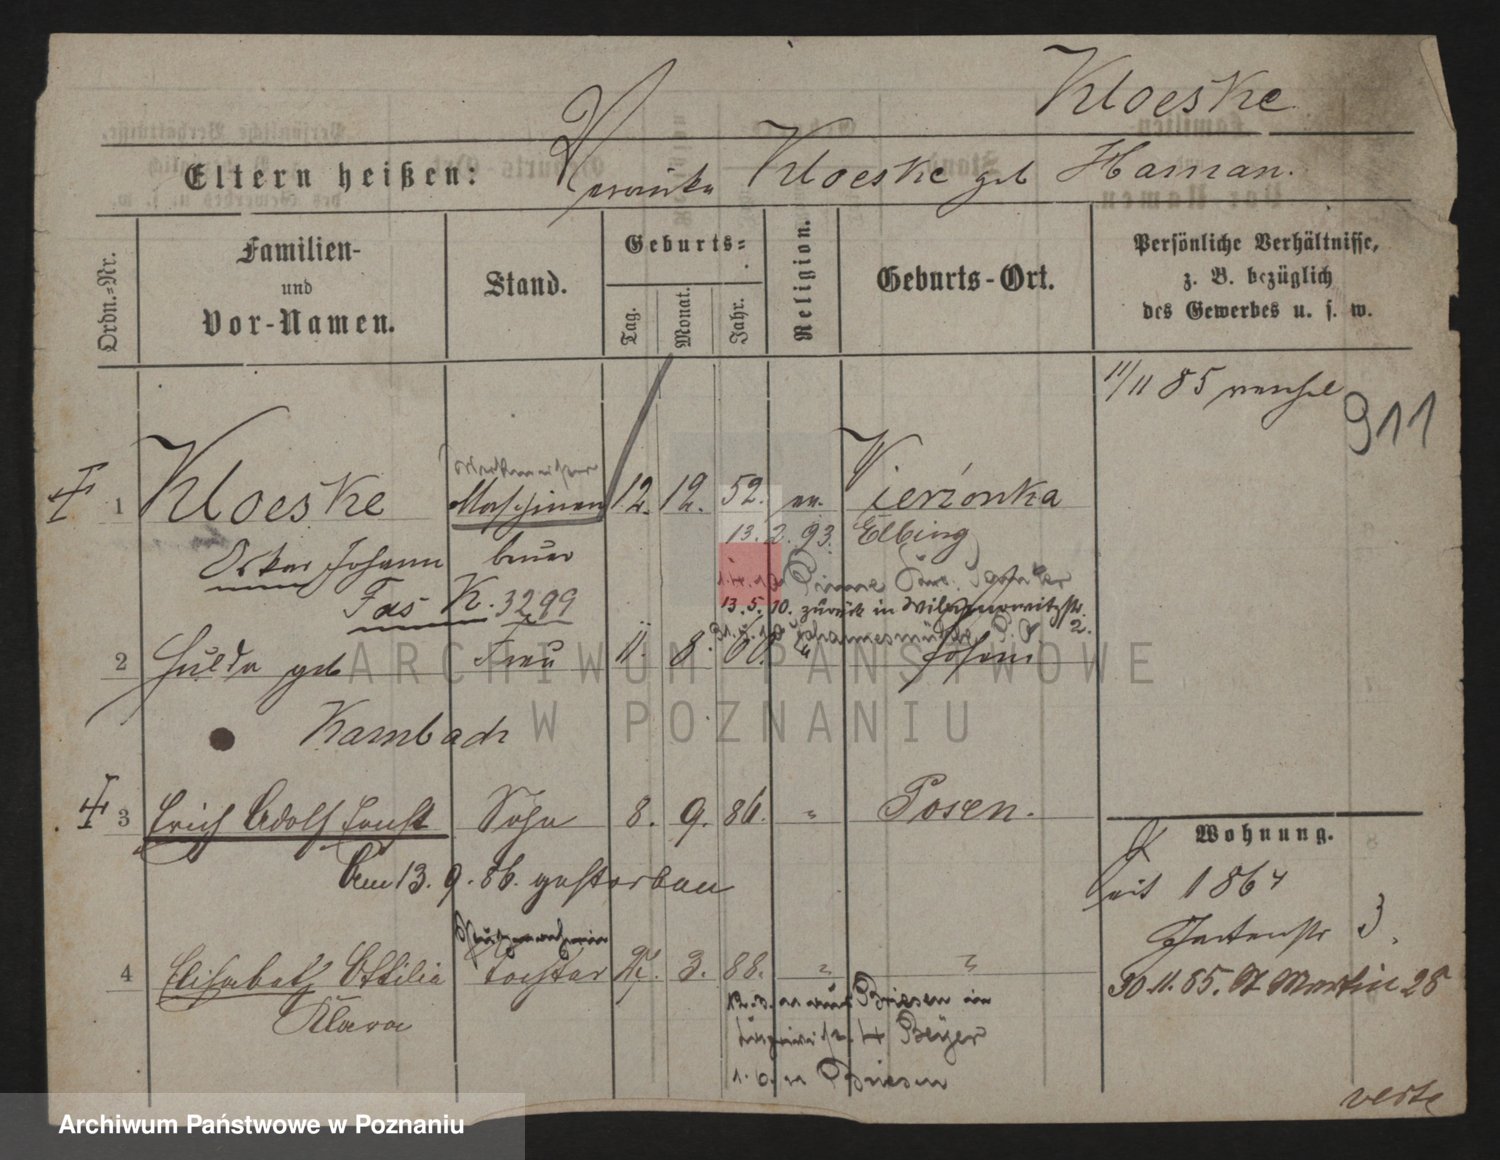 Kloeske
Eltern heißen: Veronika Kloeske geb Haman.
Ordn.-Nr.
Familien-
und
Vor-Namen.
Stand.
Geburts-
Tag.
Monat.
Jahr.
Religion.
Geburts-Ort.
Persönliche Verhältnisse,
z. B. bezüglich
des Gewerbes u. s. w.
11/11 85
911
1 Kloeske Maschinen 12. 12. 52. ev. Vierzonka
Oskar Johann bauer 13. 2. 93. Elbing
Fas K. 3299
13. 5. 10. zurück in
2 Hulda geb Frau 11. 8. 60.
Kambach
ARCHIWUM PAŃSTWOWE
W POZNANIU
3 Erich Adolf Ernst Sohn 8. 9. 86. " Posen.
Am 13. 9. 86. gestorben
4 Elisabeth Ottilie Tochter 3. 88. " "
Klara
aus Briesen in
4 Beyer
Briesen
Wohnung.
Seit 1864
Gartenstr 3.
30. 11. 85. St Martin 26
verte
Archiwum Państwowe w Poznaniu